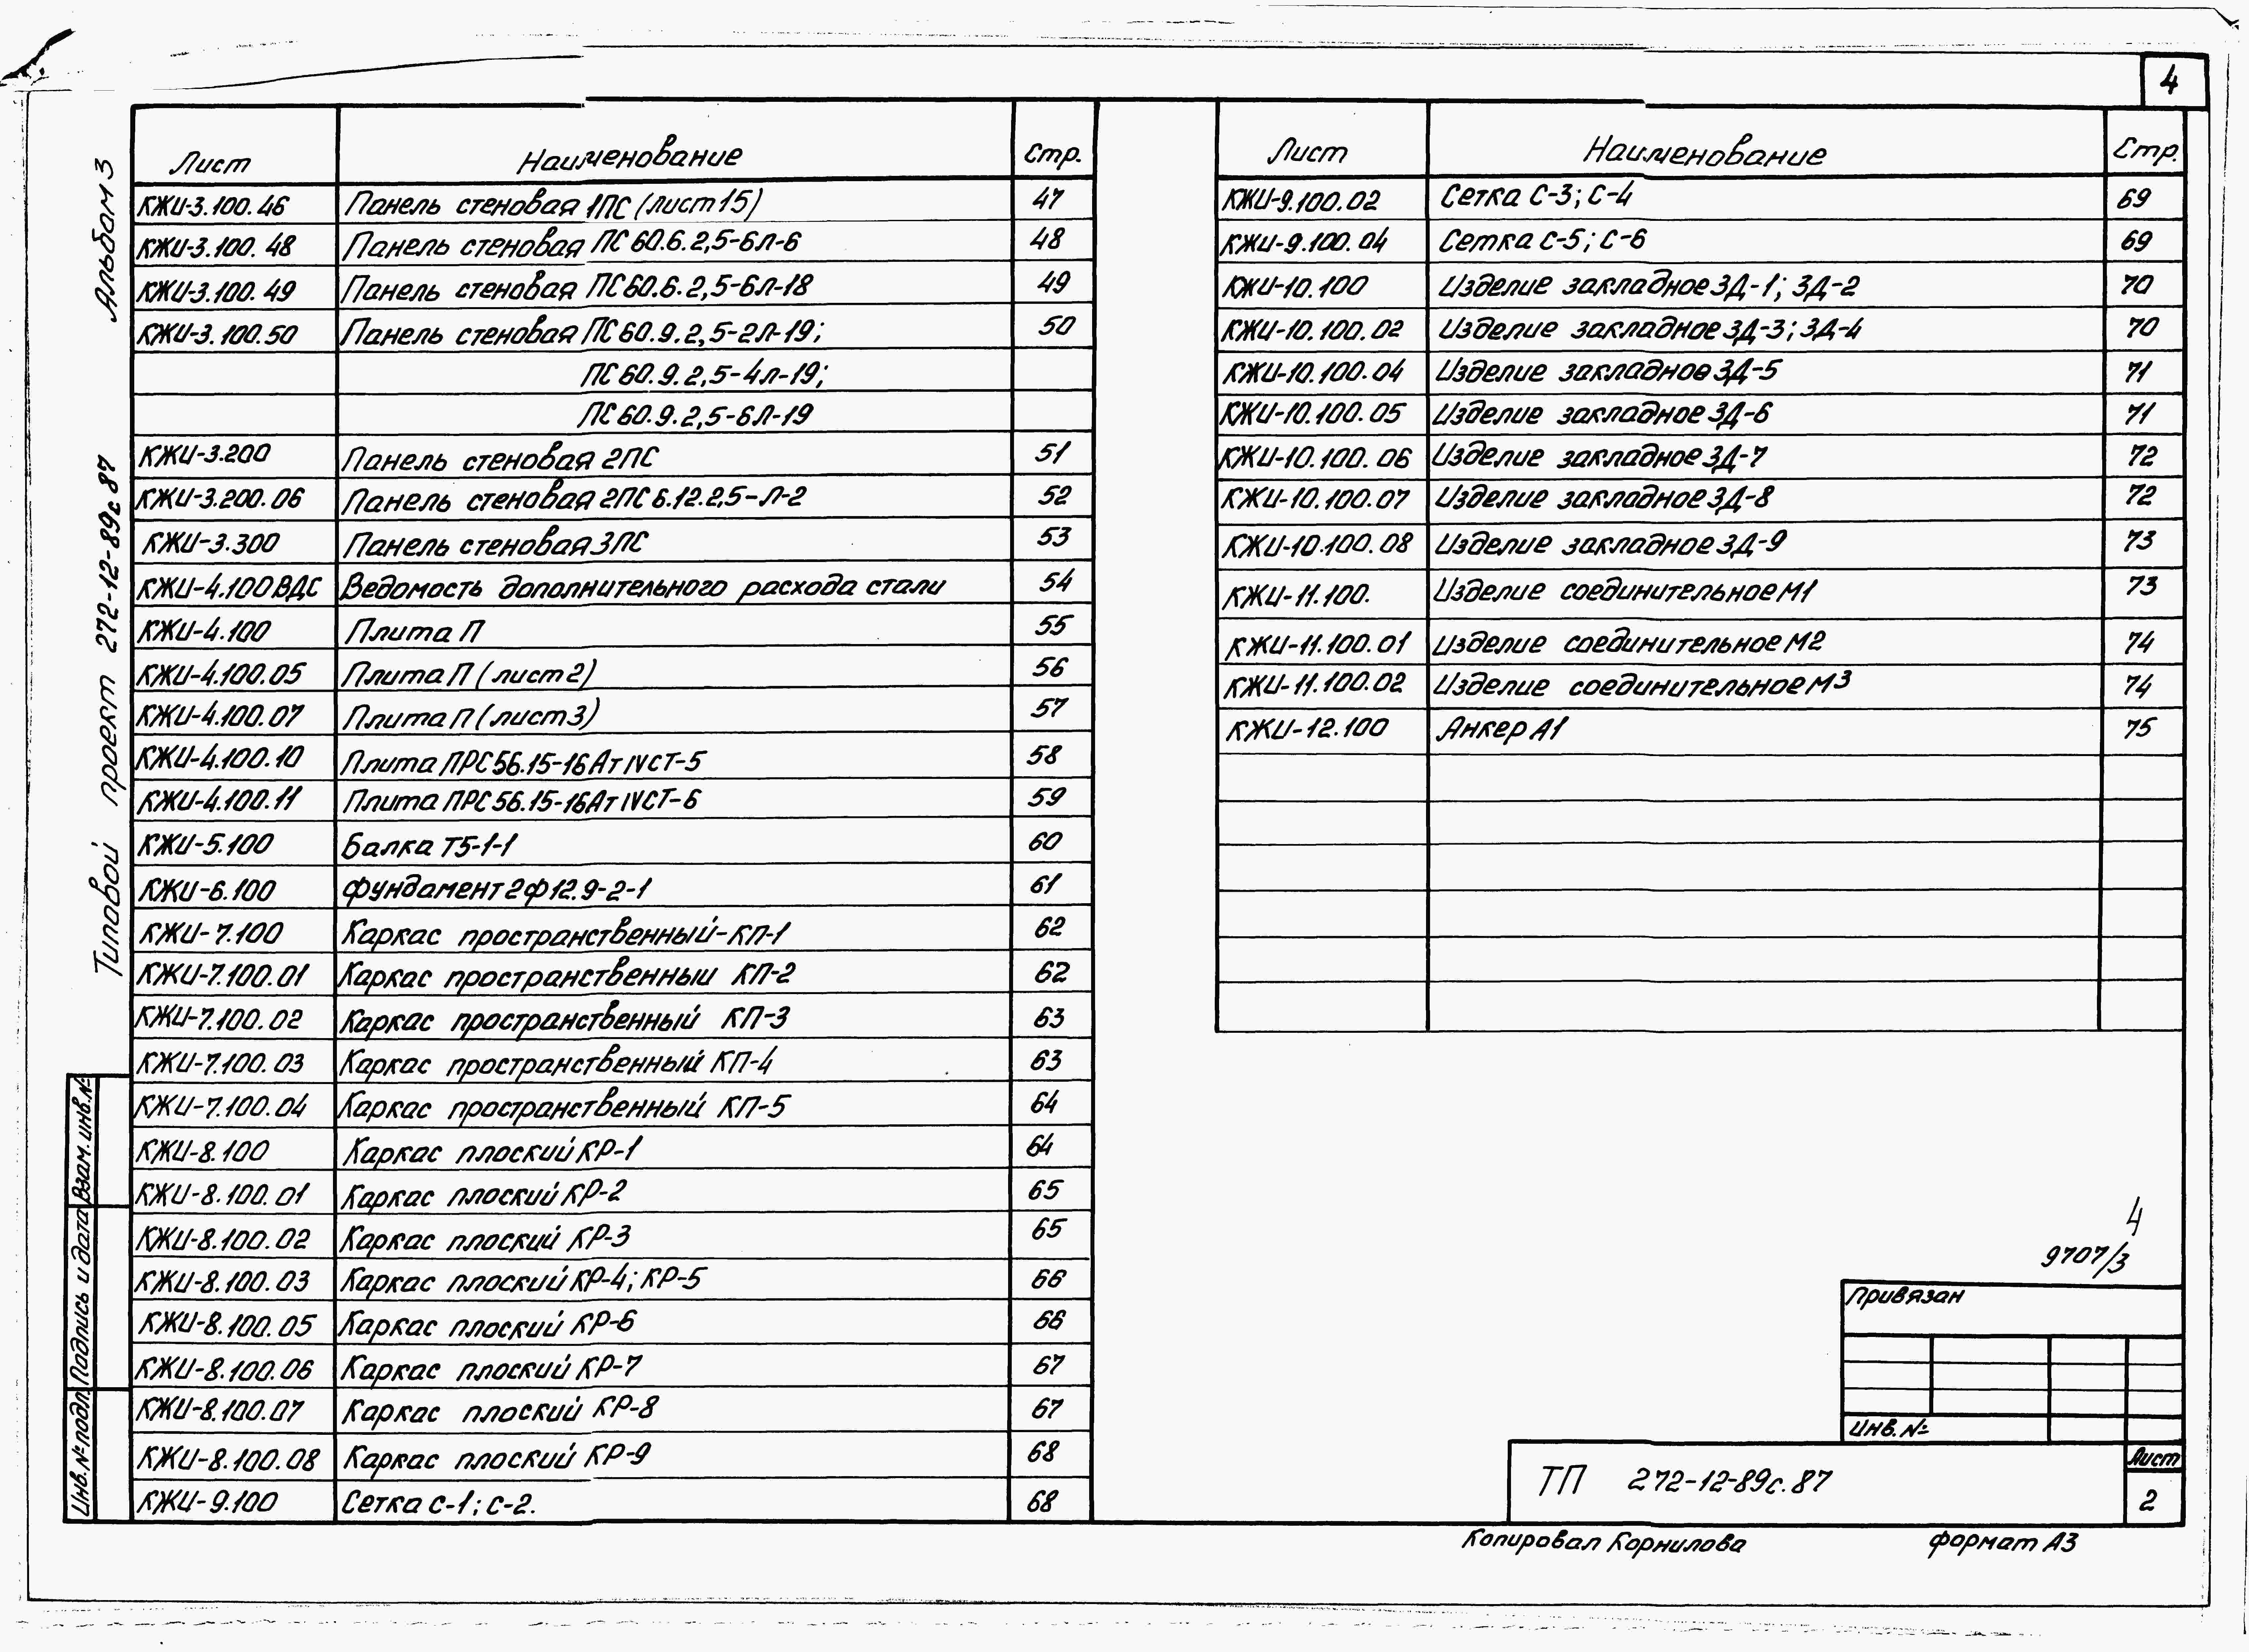 4
Альбом 3
Типовой проект 272-12-89с.87
Лист Наименование Стр.
КЖИ-3.100.46 Панель стеновая 1ПС (лист 15) 47
КЖИ-3.100.48 Панель стеновая ПС 60.6.2,5-6л-6 48
КЖИ-3.100.49 Панель стеновая ПС 60.6.2,5-6л-18 49
КЖИ-3.100.50 Панель стеновая ПС 60.9.2,5-2л-19; 50
ПС 60.9.2,5-4л-19;
ПС 60.9.2,5-6л-19
КЖИ-3.200 Панель стеновая 2ПС 51
КЖИ-3.200.06 Панель стеновая 2ПС 6.12.2,5-Л-2 52
КЖИ-3.300 Панель стеновая 3ПС 53
КЖИ-4.100ВДС Ведомость дополнительного расхода стали 54
КЖИ-4.100 Плита П 55
КЖИ-4.100.05 Плита П (лист 2) 56
КЖИ-4.100.07 Плита П (лист 3) 57
КЖИ-4.100.10 Плита ПРС 56.15-16АтIVСТ-5 58
КЖИ-4.100.11 Плита ПРС 56.15-16АтIVСТ-6 59
КЖИ-5.100 Балка Т5-1-1 60
КЖИ-6.100 Фундамент 2Ф12.9-2-1 61
КЖИ-7.100 Каркас пространственный-КП-1 62
КЖИ-7.100.01 Каркас пространственный КП-2 62
КЖИ-7.100.02 Каркас пространственный КП-3 63
КЖИ-7.100.03 Каркас пространственный КП-4 63
КЖИ-7.100.04 Каркас пространственный КП-5 64
КЖИ-8.100 Каркас плоский КР-1 64
КЖИ-8.100.01 Каркас плоский КР-2 65
КЖИ-8.100.02 Каркас плоский КР-3 65
КЖИ-8.100.03 Каркас плоский КР-4; КР-5 66
КЖИ-8.100.05 Каркас плоский КР-6 66
КЖИ-8.100.06 Каркас плоский КР-7 67
КЖИ-8.100.07 Каркас плоский КР-8 67
КЖИ-8.100.08 Каркас плоский КР-9 68
КЖИ-9.100 Сетка С-1; С-2. 68
Лист Наименование Стр.
КЖИ-9.100.02 Сетка С-3; С-4 69
КЖИ-9.100.04 Сетка С-5; С-6 69
КЖИ-10.100 Изделие закладное ЗД-1; ЗД-2 70
КЖИ-10.100.02 Изделие закладное ЗД-3; ЗД-4 70
КЖИ-10.100.04 Изделие закладное ЗД-5 71
КЖИ-10.100.05 Изделие закладное ЗД-6 71
КЖИ-10.100.06 Изделие закладное ЗД-7 72
КЖИ-10.100.07 Изделие закладное ЗД-8 72
КЖИ-10.100.08 Изделие закладное ЗД-9 73
КЖИ-11.100. Изделие соединительное М1 73
КЖИ-11.100.01 Изделие соединительное М2 74
КЖИ-11.100.02 Изделие соединительное М3 74
КЖИ-12.100 Анкер А1 75
Взам. инв. №
Подпись и дата
Инв. № подл.
4
9707/3
Привязан
Инв. №
ТП 272-12-89с.87
Лист
2
Копировал Корнилова формат А3